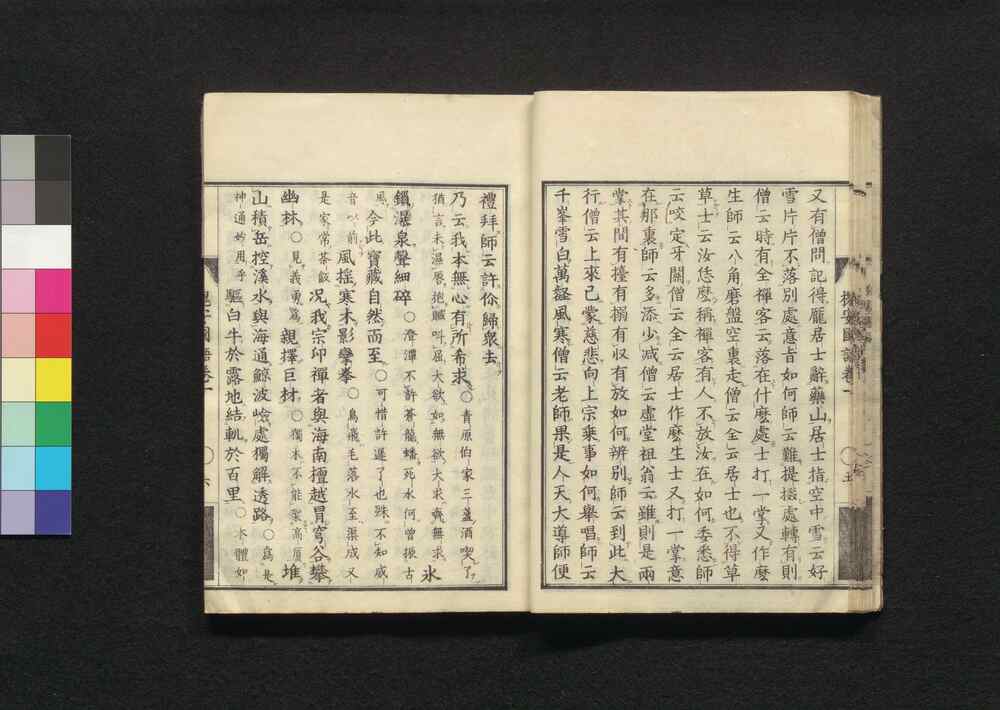 又有僧問記得龐居士辭藥山居士指空中雪云好
雪片片不落別處意旨如何師云難提掇處轉有則
僧云時有全禪客云落在什麼處士打一掌又作麼
生師云八角磨盤空裏走僧云全云居士也不得草
草士云汝恁麼稱禪客有人不放汝在如何委悉師
云咬定牙關僧云全云居士作麼生士又打一掌意
在那裏師云多添少減僧云虛堂祖翁云雖則是兩
掌其間有擡有搦有収有放如何辨別師云到此大
行僧云上來已蒙慈悲向上宗乗事如何舉唱師云
千峯雪白萬壑風寒僧云老師果是人天大導師便
禮拜師云許你歸衆去
乃云我本無心有所希求○青原伯家三盞酒喫了
猶言未濕唇抱贓呌屈大欲如無欲大求齊無求氷
鎖瀑泉聲細碎○澄潭不許蒼龍蟠死水何曾振古
風今此寶藏自然而至○可惜許遲了也殊不知威
音以前風揺寒木影攣拳○鳥飛毛落水至渠成又
是家常茶飯况我宗卬禪者與海南檀越冐穹谷攀
幽林○見義勇爲親擇巨材○獨木不能架高厦堆
山積岳控溪水與海通鯨波嶮處獨解透路○爲是
神通妙用乎驅白牛於露地結軌於百里○本體如